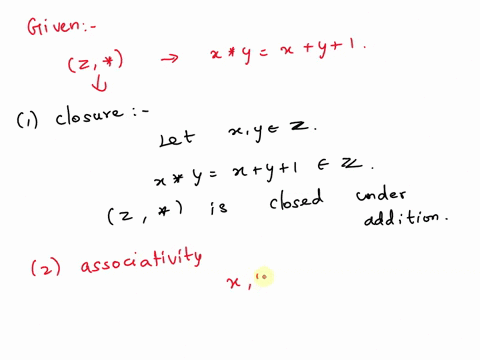 Given:-
(Z, *) → x * y = x + y + 1.
↓
(1) closure :-
Let x, y ∈ Z.
x * y = x + y + 1 ∈ Z.
(Z, *) is closed under
addition.
(2) associativity
x,